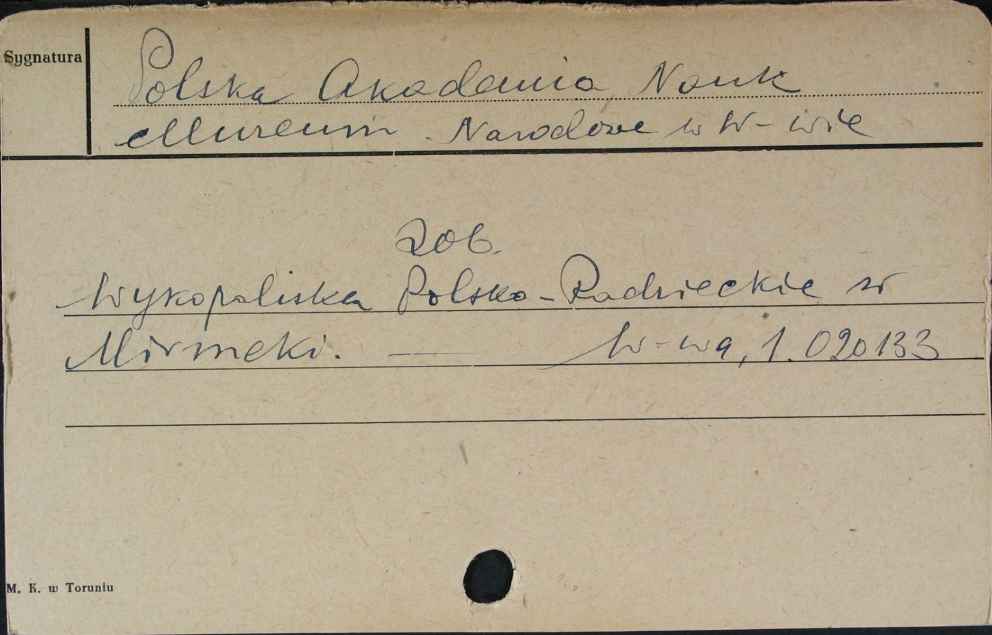 Sygnatura
Polska Akademia Nauk
Muzeum Narodowe w W-wie
zob.
Wykopaliska Polsko-Radzieckie w
Mirmeki. — W-wa, 1. 020133
M. K. w Toruniu